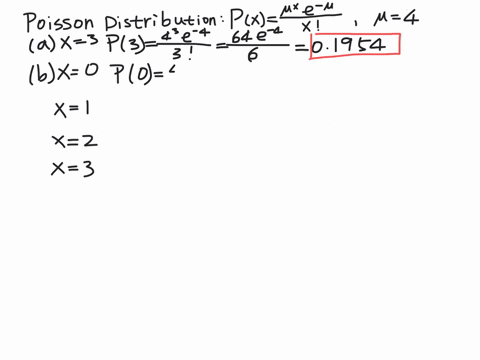 Poisson Distribution: P(x)=μ^x e^-μ/x! , μ=4
(a) x=3 P(3)=4^3 e^-4/3! = 64e^-4/6 = 0.1954
(b) x=0 P(0)=
x=1
x=2
x=3